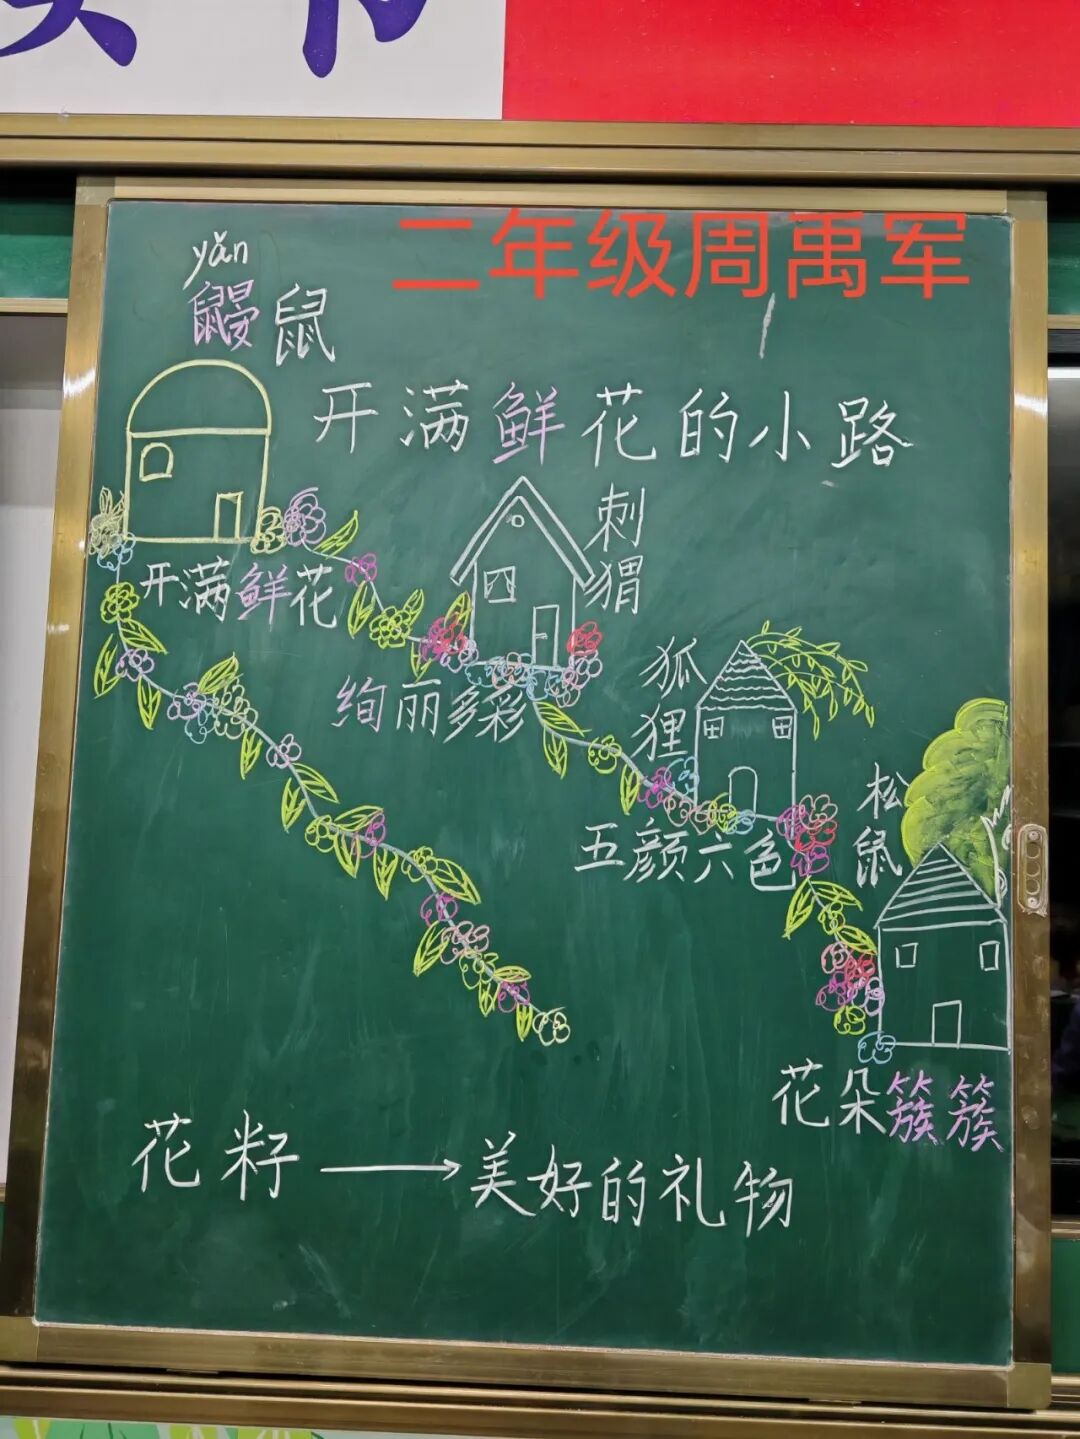 二年级周禹军
yǎn
鼹鼠
开满鲜花的小路
刺猬
开满鲜花
狐狸
绚丽多彩
松鼠
五颜六色
花朵簇簇
花籽→美好的礼物